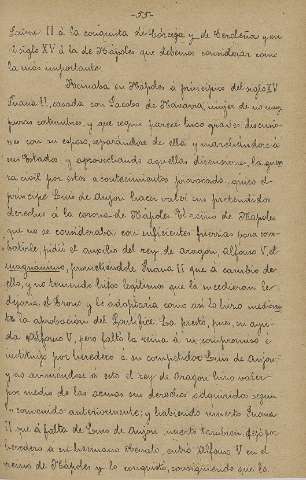 -55-
Jaime II á la conquista de Córcega y de Cerdeña y en
el siglo XV á la de Nápoles que debemos considerar como
la más importante.
Reinaba en Nápoles á principios del siglo XV
Juana II, casada con Jacobo de Navarra, mujer de no muy
puras costumbres, y que según parece tuvo graves discusio-
nes con su esposo, separándose de ella y marchándose á
sus Estados y aprovechando aquellas discusiones, la gue-
rra civil por estos acontecimientos provocada, quiso el
príncipe Luis de Anjou hacer valer sus pretendidos
derechos á la corona de Nápoles. El reino de Nápoles
que no se consideraba con suficientes fuerzas para com-
batirle pidió el auxilio del rey de Aragón, Alfonso V, el
magnánimo, prometiéndole Juana II que á cambio de
ello, y no teniendo hijos legítimos que la sucedieran le
dejaría el trono y le adoptaría como así lo hizo median-
te la aprobación del Pontífice. La prestó, pues, su ayu-
da Alfonso V, pero faltó la reina á su compromiso é
instituyó por heredero á su competidor Luis de Anjou
y no animándose á esto el rey de Aragón hizo valer
por medio de las armas sus derechos adquiridos según
convenido anteriormente; y habiendo muerto Juana
II que á falta de Luis de Anjou muerto también, dejó por
heredero á su hermano Renato entró Alfonso V en el
reino de Nápoles y lo conquistó, consiguiendo que la